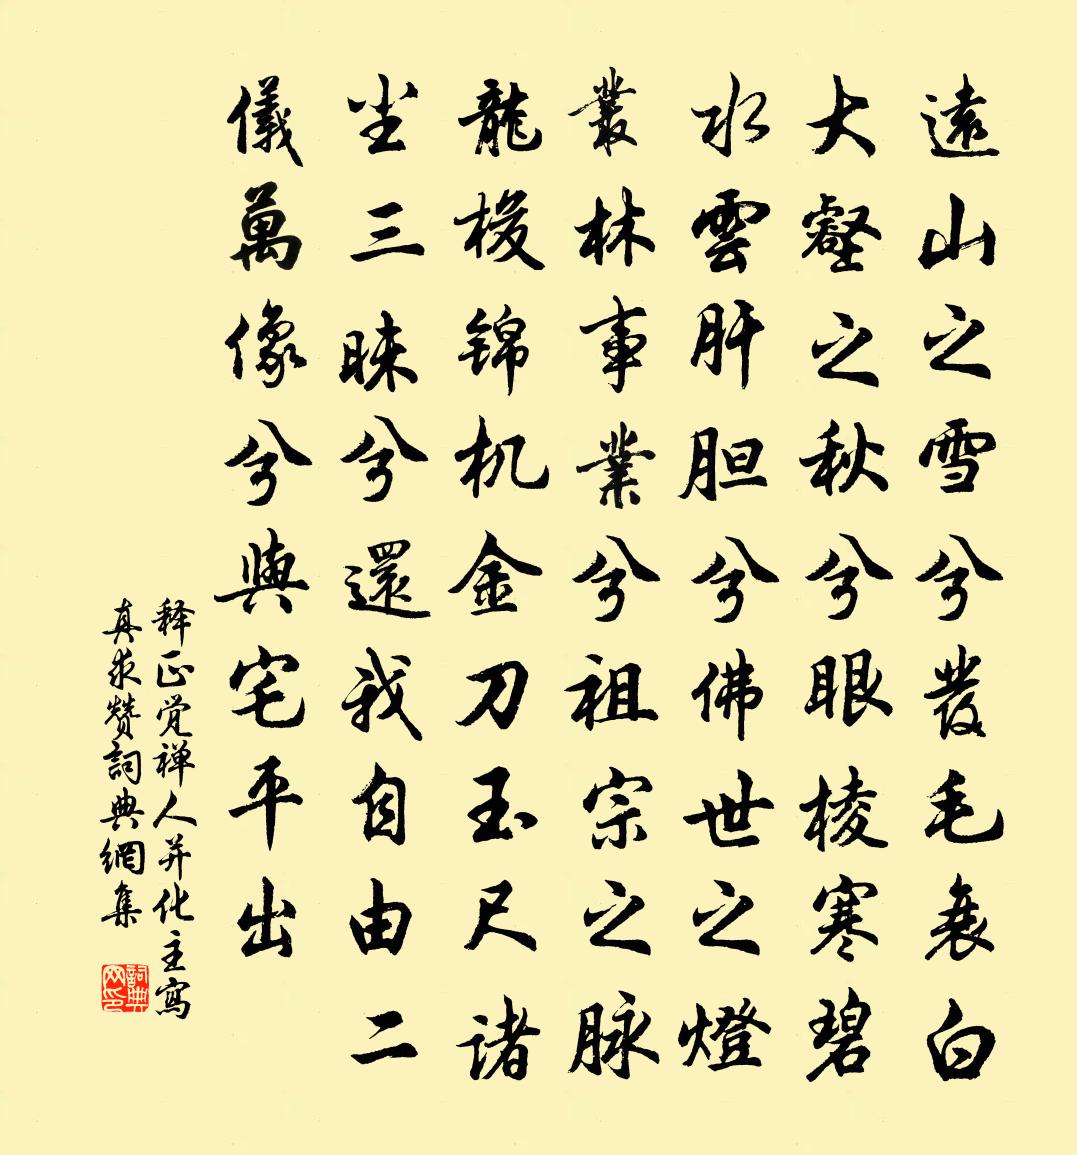 遠山之雪兮發毛衰白
大壑之秋兮眼棱寒碧
水雲肝胆兮佛世之燈
叢林事業兮祖宗之脉
龍梭锦机金刀玉尺诸
尘三昧兮還我自由二
儀萬像兮與宅平出
释正觉禅人并化主寫
真求赞詞典網集
詞典网印